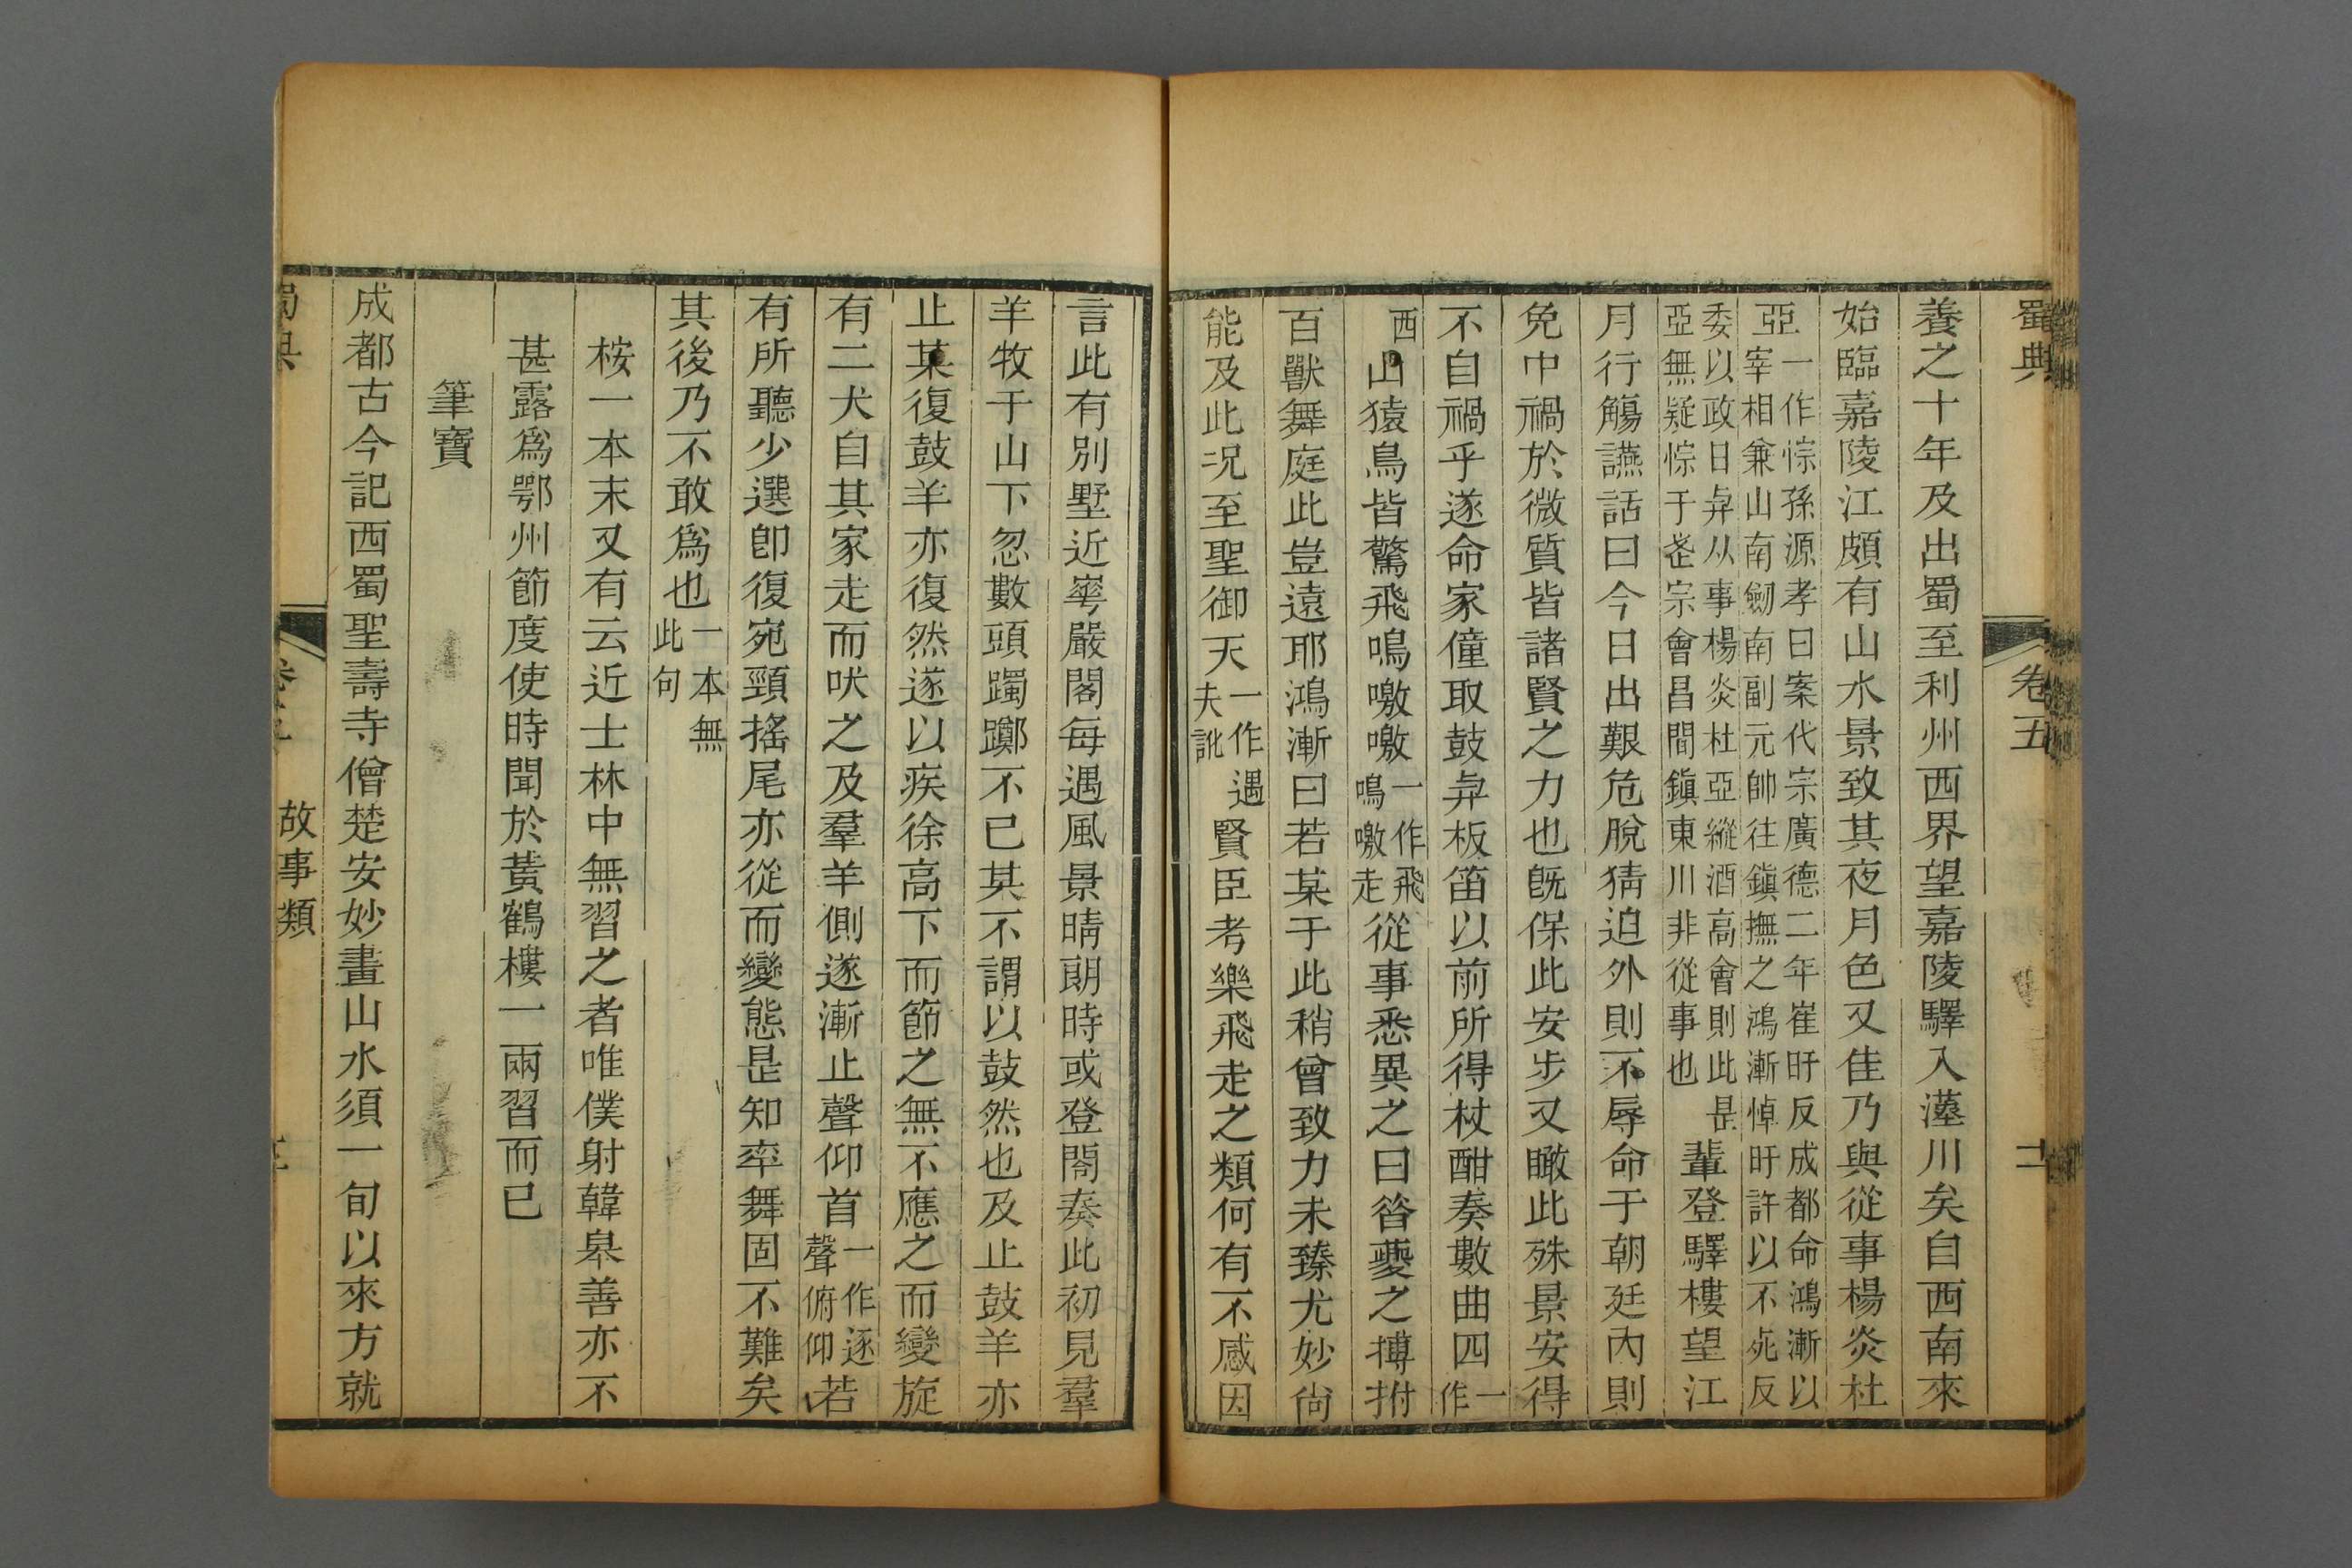 蜀典 卷五
養之十年及出蜀至利州西界望嘉陵驛入漢川矣自西南來
始臨嘉陵江頗有山水景致其夜月色又佳乃與從事楊炎杜
亞一作悰孫源孝曰案代宗廣德二年崔旰反成都命鴻漸以
宰相兼山南劒南副元帥往鎮撫之鴻漸憚旰許以不死反
委以政日與从事楊炎杜亞縱酒高會則此是
亞無疑悰于宗會昌間鎮東川非從事也輩登驛樓望江
月行觴讌話曰今日出艱危脫猜迫外則不辱命于朝廷內則
免中禍於微質皆諸賢之力也旣保此安步又瞰此殊景安得
不自禍乎遂命家僮取鼓與板笛以前所得杖酣奏數曲四一作
西山猿鳥皆驚飛鳴噭噭一作飛鳴噭走從事悉異之曰昝夔之搏拊
百獸舞庭此豈遠耶鴻漸曰若某于此稍曾致力未臻尤妙尙
能及此况至聖御天一作遇夫訛賢臣考樂飛走之類何有不感因
言此有別墅近寧嚴閣每遇風景晴朗時或登閣奏此初見羣
羊牧于山下忽數頭躅躑不已某不謂以鼓然也及止鼓羊亦
止某復鼓羊亦復然遂以疾徐高下而節之無不應之而變旋
有二犬自其家走而吠之及羣羊側遂漸止聲仰首一作逐聲俯仰若
有所聽少選卽復宛頸搖尾亦從而變態是知率舞固不難矣
其後乃不敢爲也一本無此句
桉一本末又有云近士林中無習之者唯僕射韓皋善亦不
甚露爲鄂州節度使時聞於黃鶴樓一兩習而已
筆寶
成都古今記西蜀聖壽寺僧楚安妙畫山水須一旬以來方就
蜀典 故事類